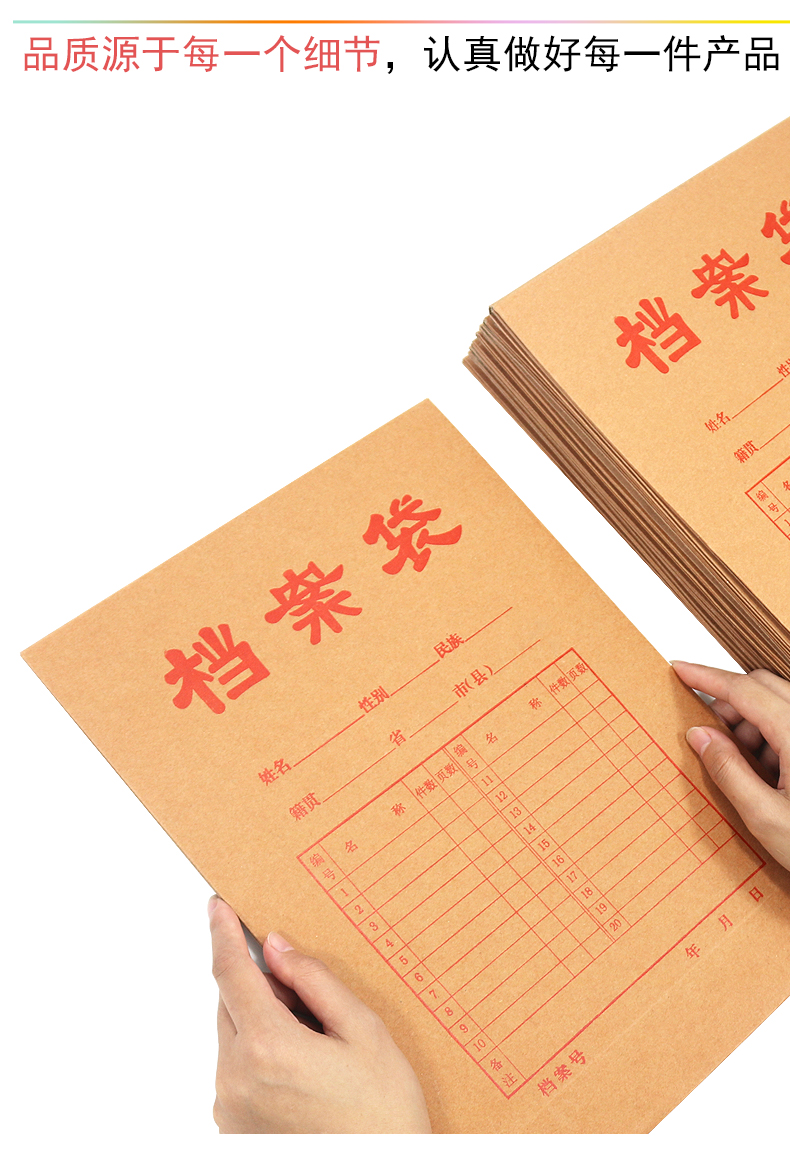 品质源于每一个细节，认真做好每一件产品
档案袋
姓名 性别
籍贯
编号 名
1
档案袋
姓名 性别 民族
籍贯 省 市(县)
编号 名 称 件数 页数 编号 名 称 件数 页数
1 11
2 12
3 13
4 14
5 15
6 16
7 17
8 18
9 19
10 20
备注
档案号 年 月 日